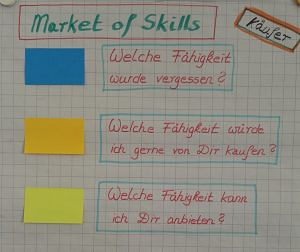 Market of Skills
Käufer
Welche Fähigkeit
wurde vergessen?
Welche Fähigkeit würde
ich gerne von Dir kaufen?
Welche Fähigkeit kann
ich Dir anbieten?